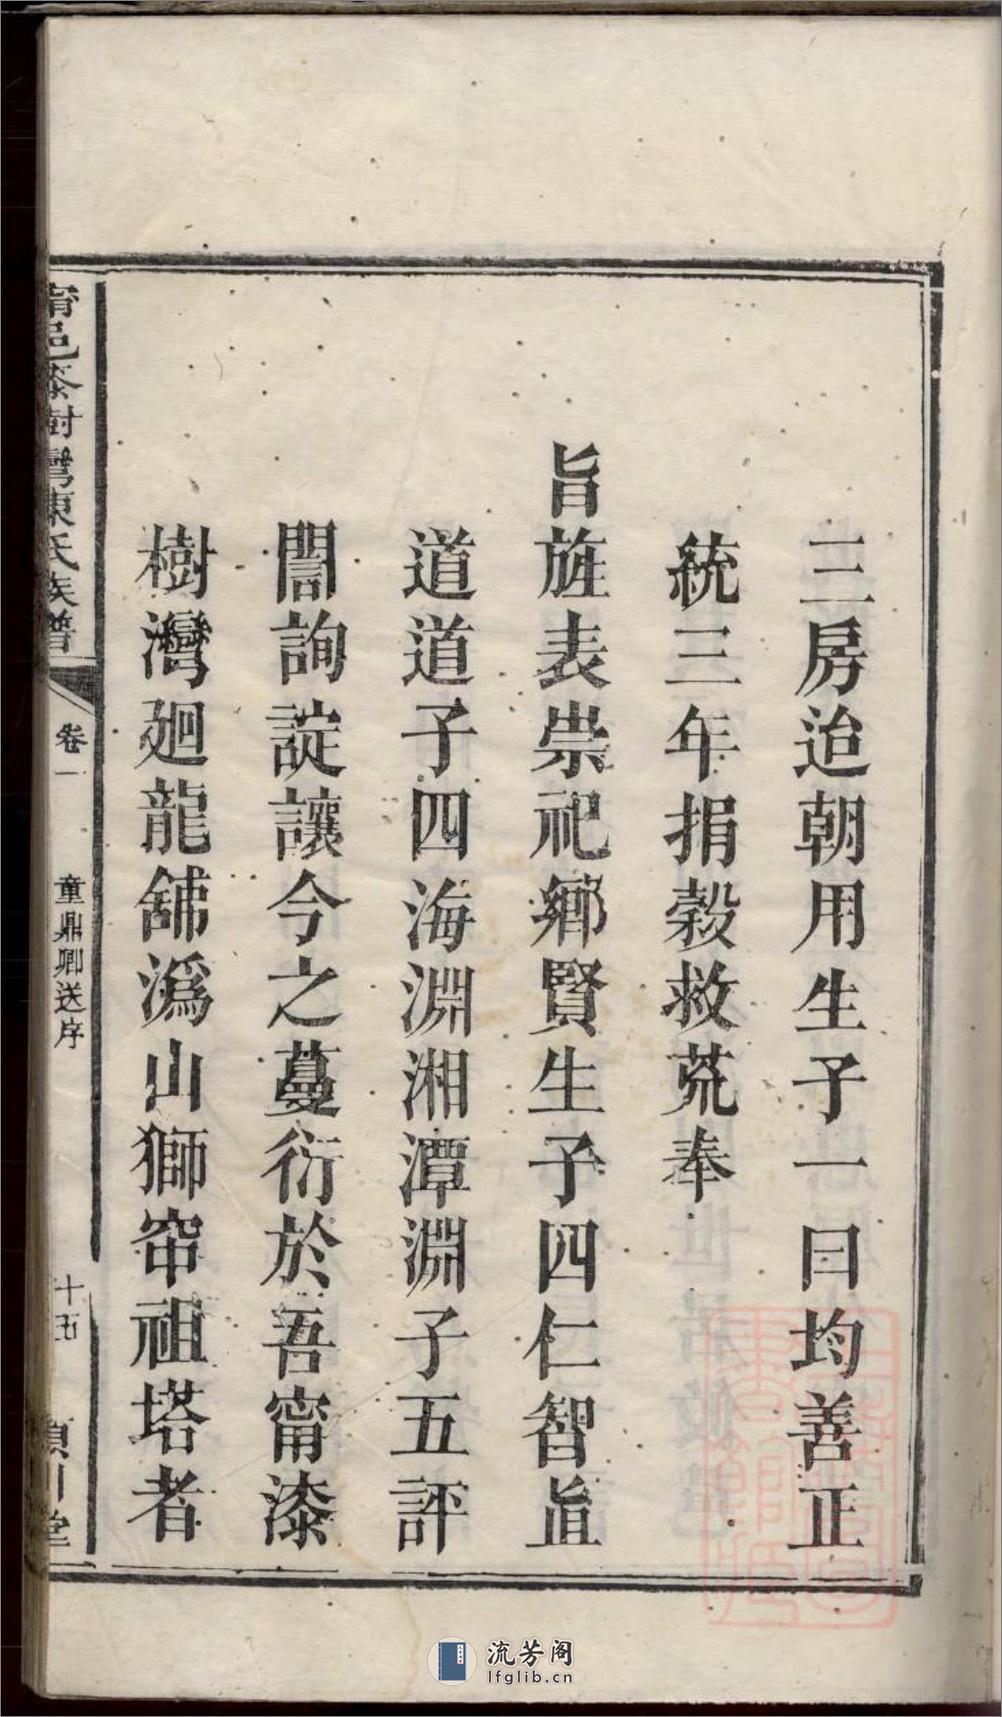 三房迨朝用生子一曰均善正
統三年捐榖救荒奉
旨旌表崇祀鄉賢生子四仁智直
道道子四海淵湘潭淵子五評
誾詢諚讓今之蔓衍於吾甯漆
樹灣廻龍舖溈山獅窋祖塔者
甯邑漆樹灣陳氏族譜
卷一
童鼎卿送序
十五
潁川堂
流芳阁
lfglib.cn